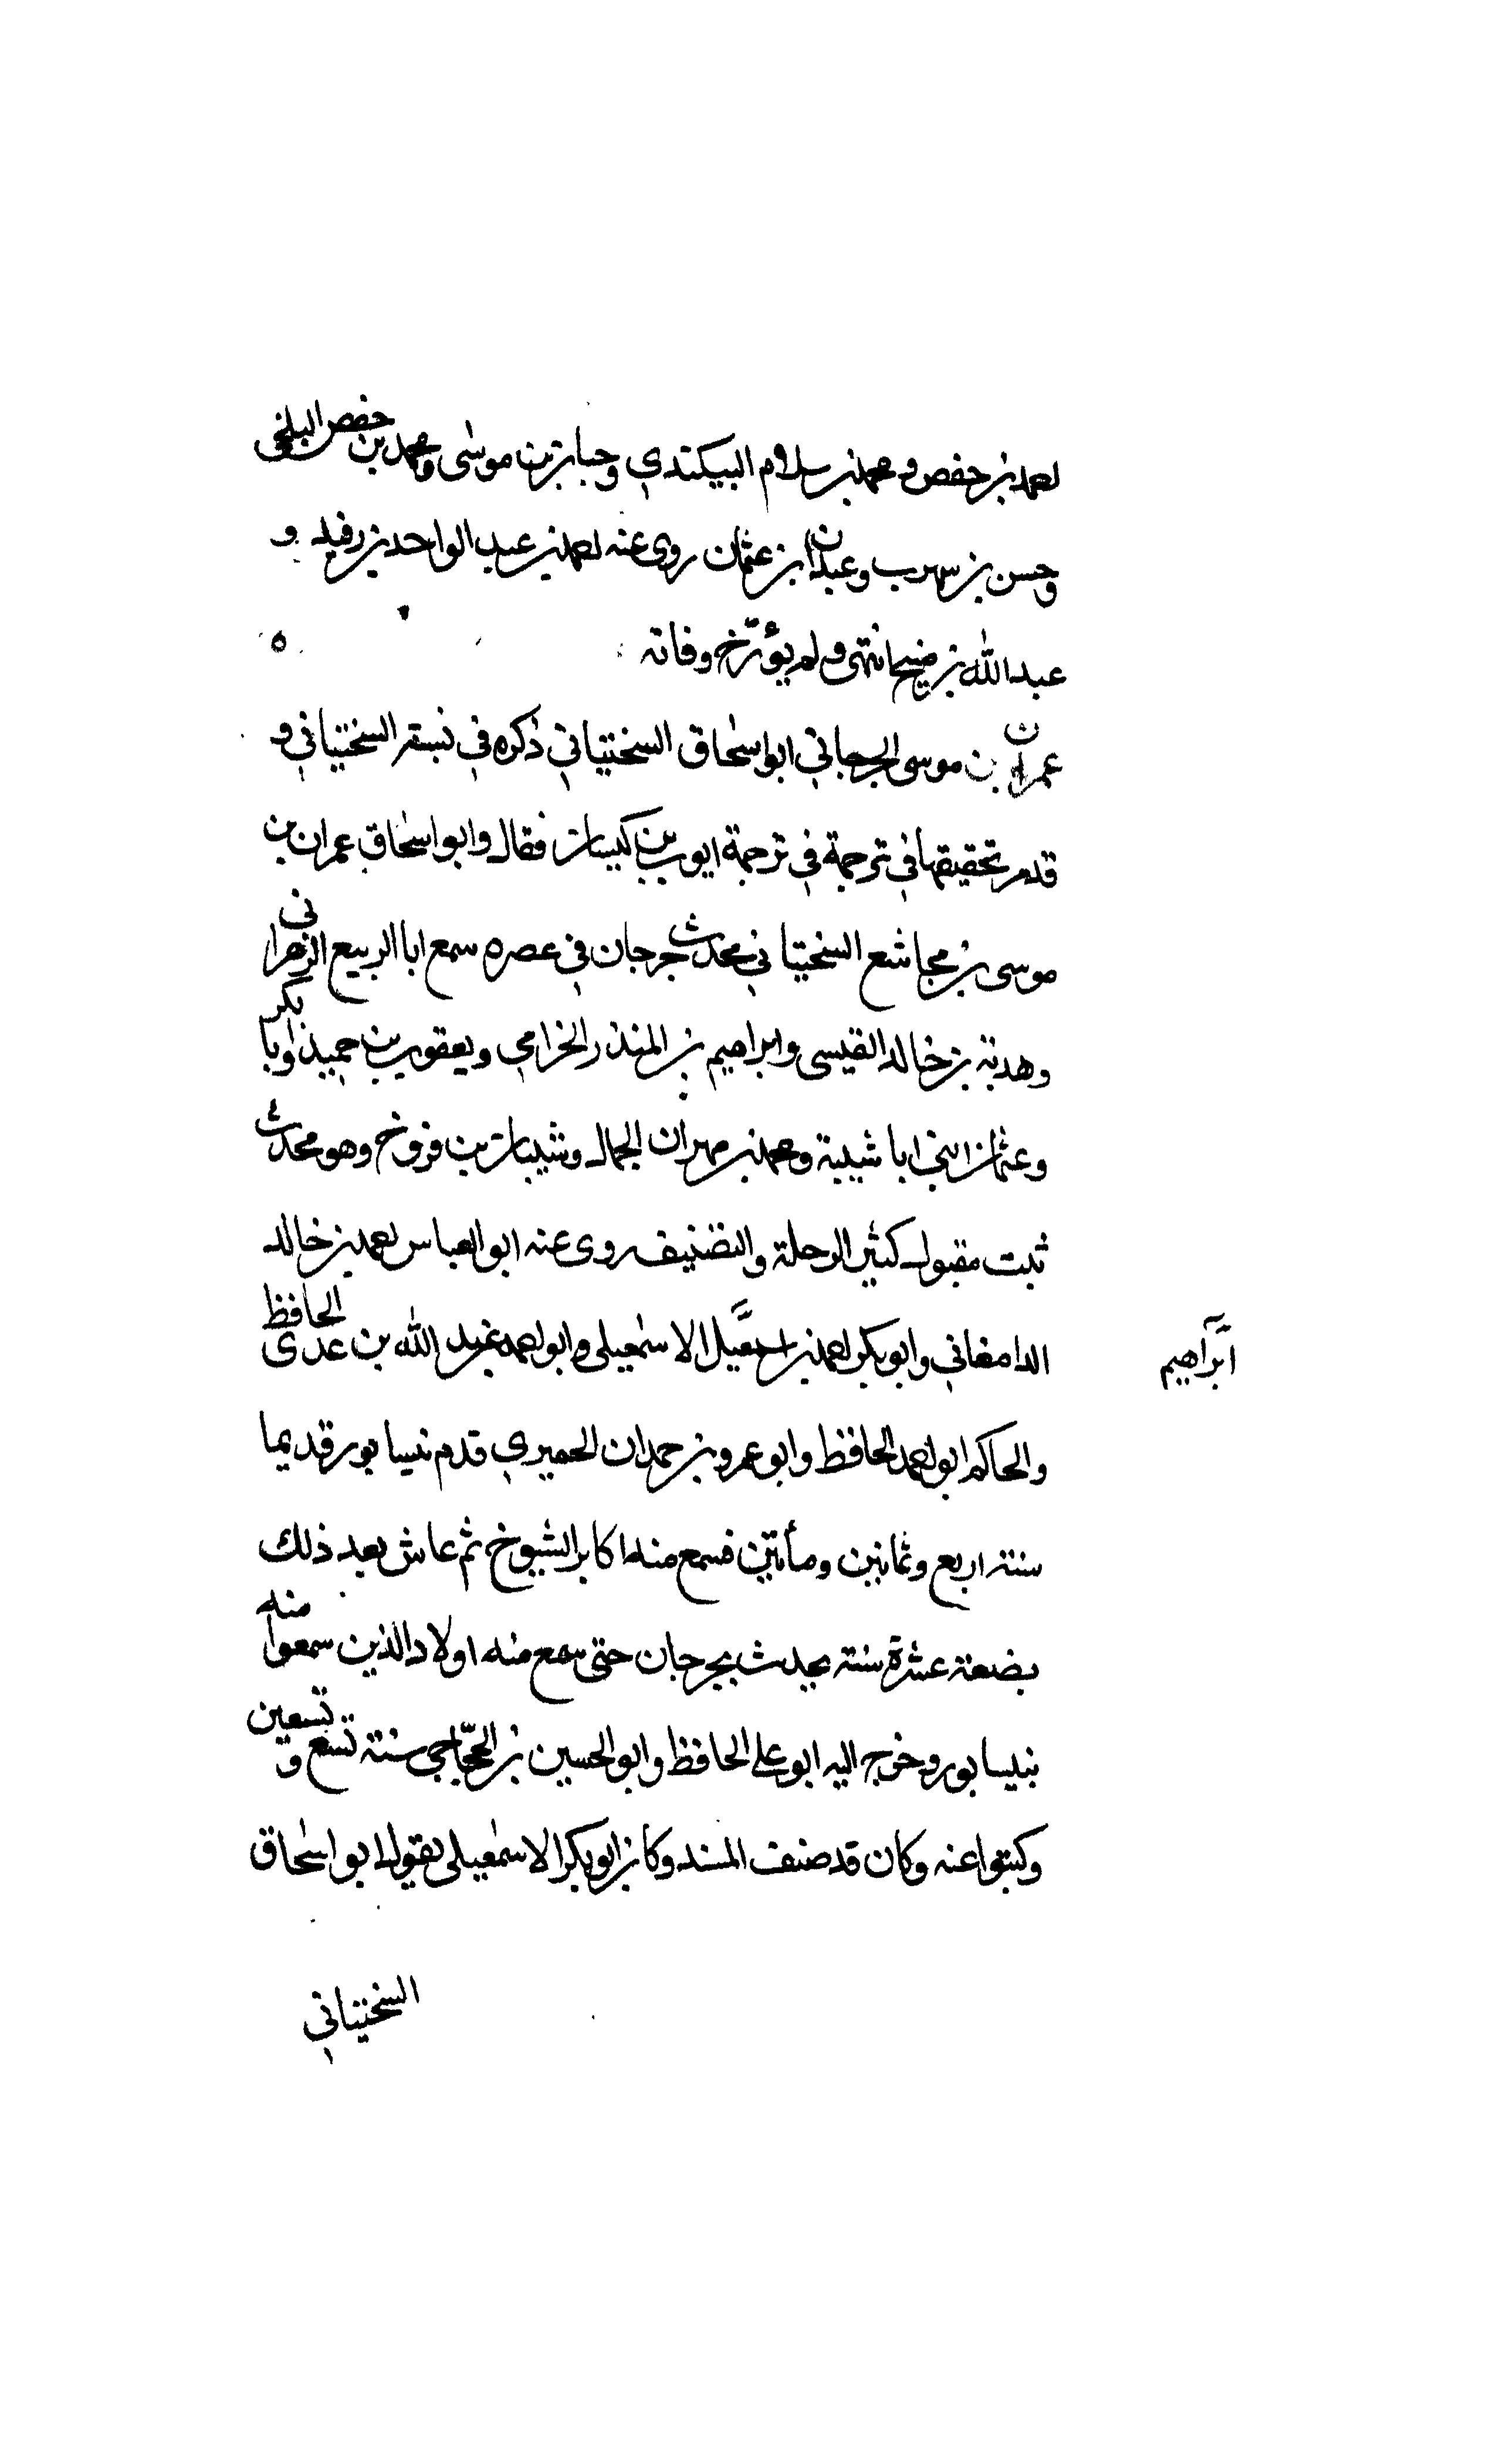 احمد بن حفص ومحمد بن سلام البيكندي وحبان بن موسى ومحمد بن حفص البلخي
وحسن بن سهرب وعبدان بن عثمان روى عنه احمد بن عبد الواحد بن رفيد و
عبد الله بن منيح انتهى ولم يؤرّخ وفاته ٥
عمران بن موسى الجرجاني ابو اسحاق السختياني ذكره في نسبة السختياني و
قدم تحقيقها في ترجمة في ترجمة ايوب بن كيسان فقال وابو اسحاق عمران بن
موسى بن مجاشع السختياني محدث جرجان في عصره سمع ابا الربيع الزهراني
وهدبة بن خالد القيسى وابراهيم بن المنذر الخزامي ويعقوب بن حميد وابا بكر
وعثمان ابني ابا شيبة ومحمد بن مهران الجمال وشيبان بن فروخ وهو محدث
ثبت مقبول كثير الرحلة والتصنيف روى عنه ابو العباس احمد بن خالد
الدامغاني وابو بكر احمد بن اسمعيل الاسمعيلى وابو احمد عبد الله بن عدى الحافظ
ابراهيم
والحاكم ابو احمد الحافظ وابو عمرو بن حمدان الحميري قدم نيسابور قديما
سنة اربع وثمانين ومأتين فسمع منه اكابر الشيوخ ثم عاش بعد ذلك
بضعة عشرة سنة يحدث بجرجان حتى سمع منه اولاد الذين سمعوا منه
بنيسابور وخرج اليه ابو على الحافظ وابو الحسين بن الحجّاجي سنة تسع وتسعين
وكتبوا عنه وكان قد صنف المسند وكان ابو بكر الاسمعيلى يقول ابو اسحاق
السختياني